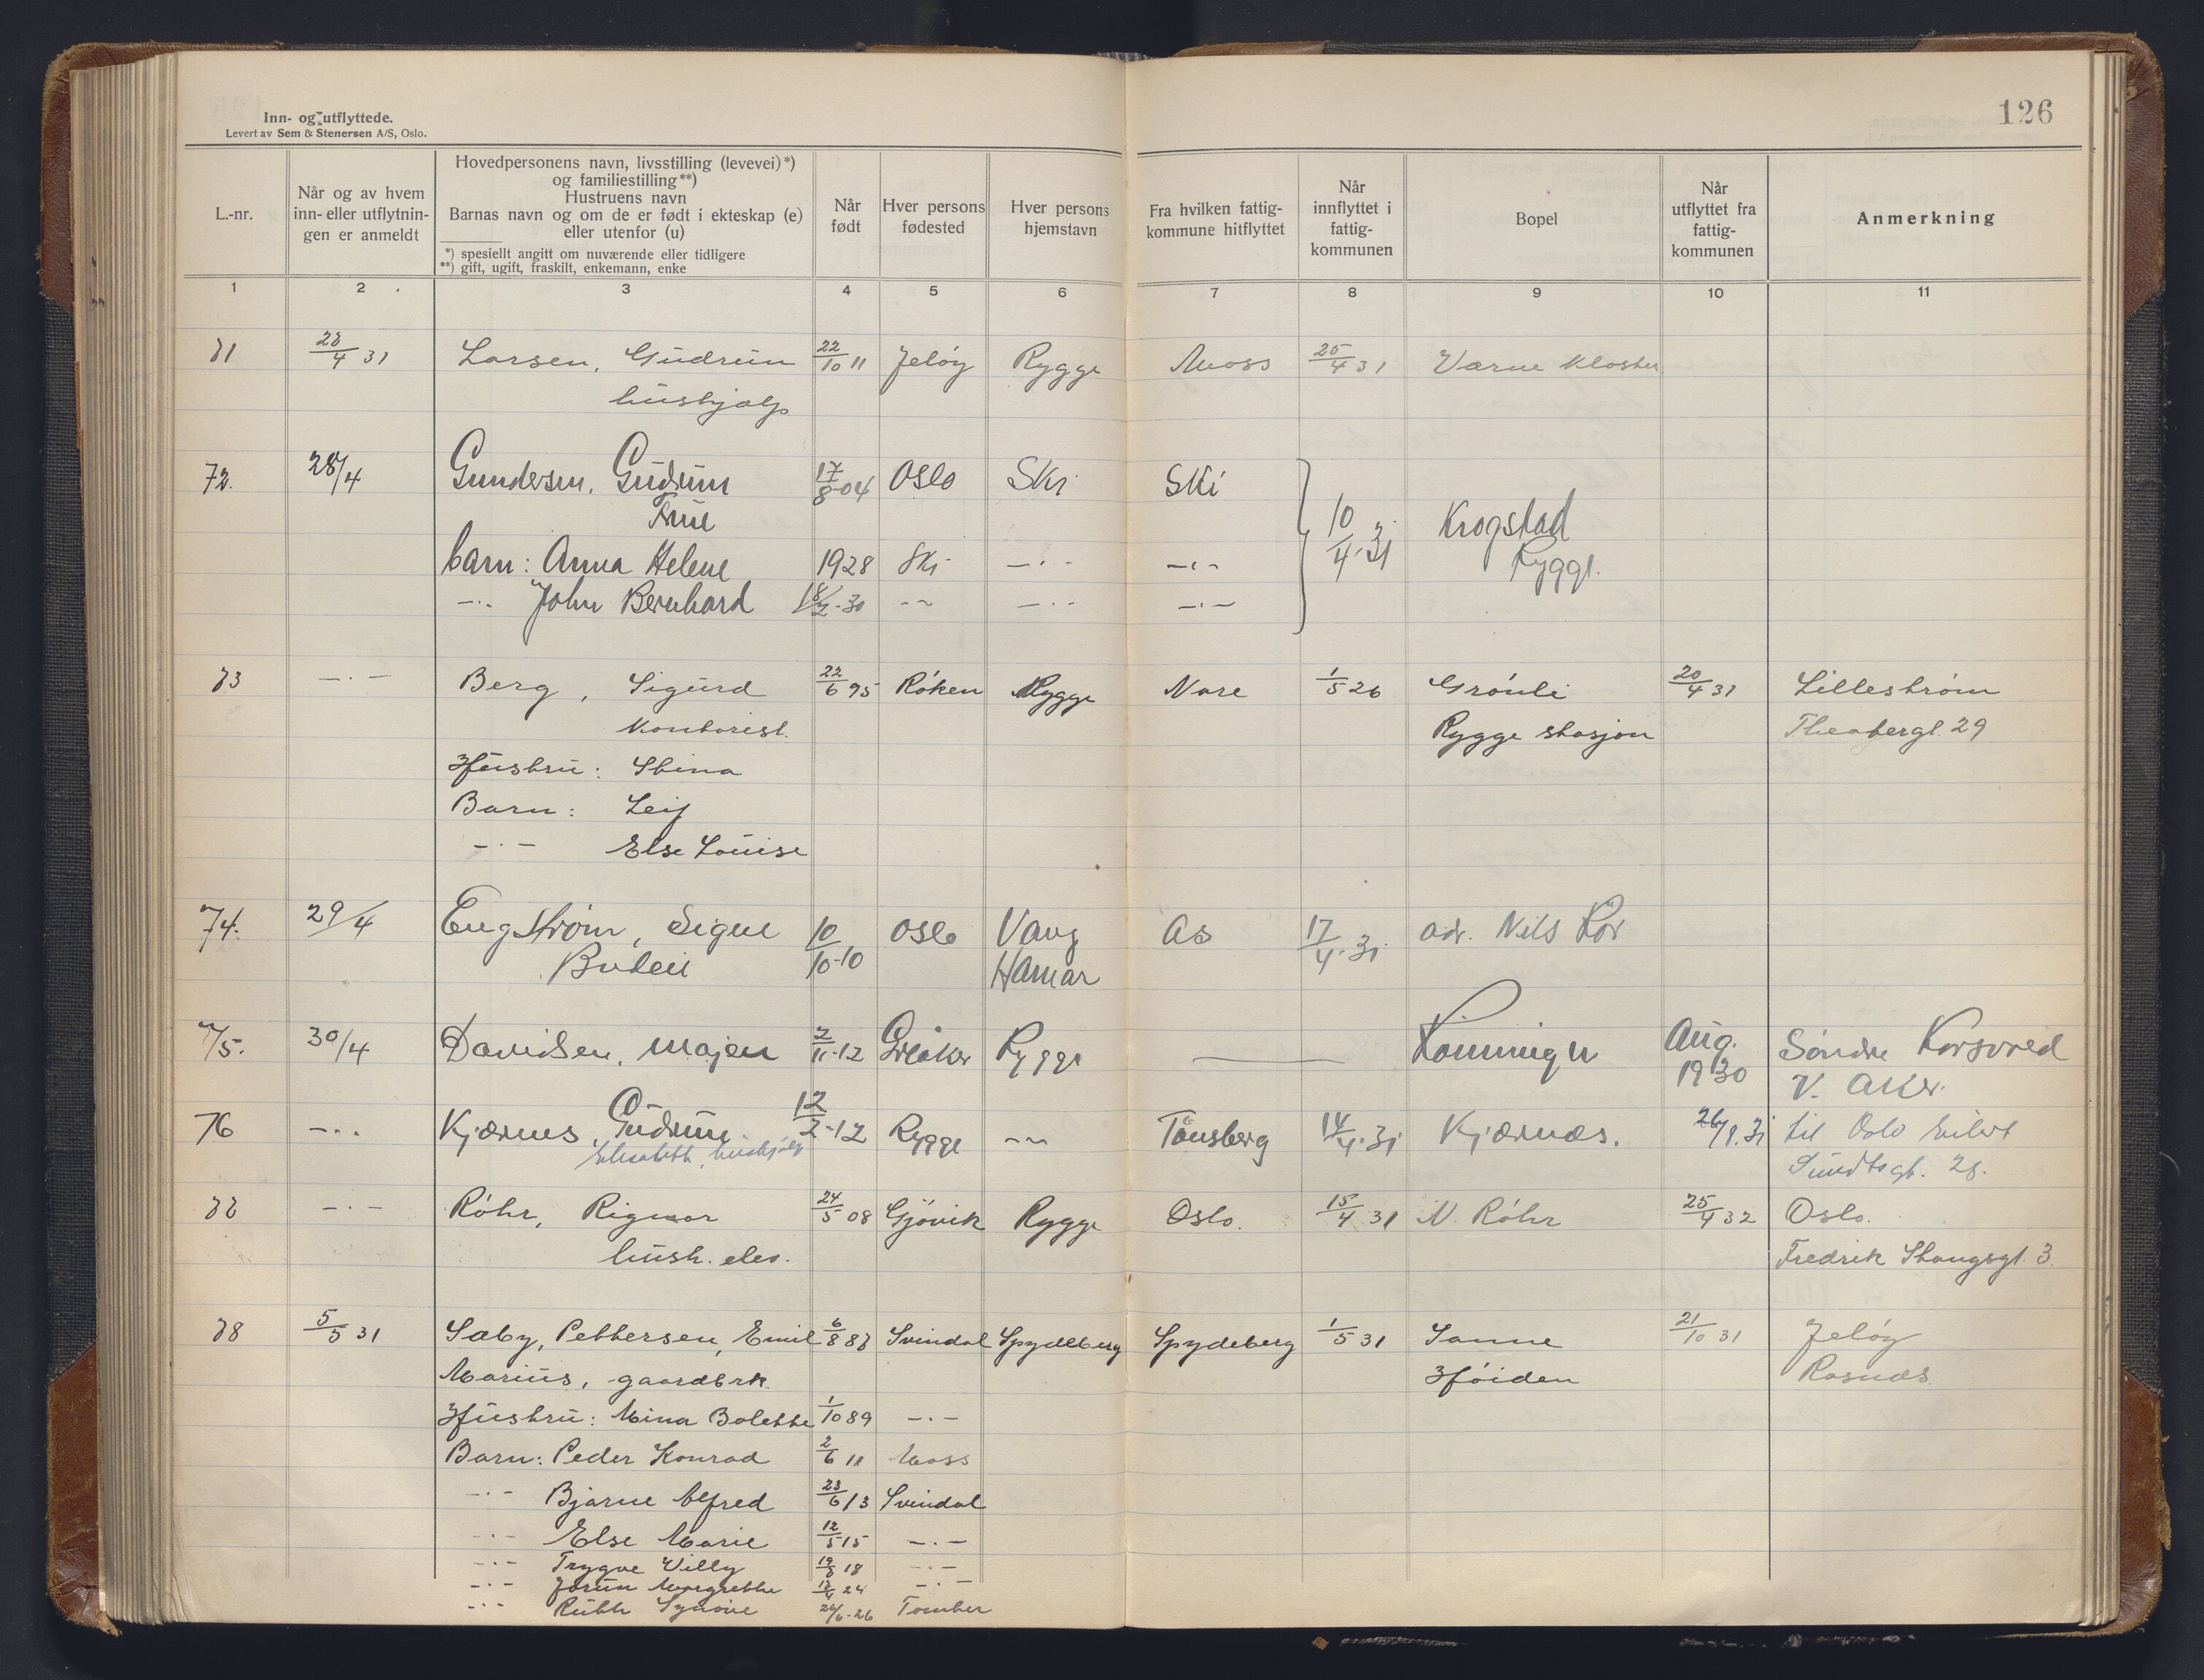 Inn- og utflyttede.
Levert av Sem & Stenersen A/S, Oslo.
126
L.-nr.
Når og av hvem inn- eller utflytnin-gen er anmeldt
Hovedpersonens navn, livsstilling (levevei)*)
og familiestilling**)
Hustruens navn
Barnas navn og om de er født i ekteskap (e)
eller utenfor (u)
*) spesielt angitt om nuværende eller tidligere
**) gift, ugift, fraskilt, enkemann, enke
Når født
Hver persons fødested
Hver persons hjemstavn
Fra hvilken fattig-kommune hitflyttet
Når innflyttet i fattig-kommunen
Bopel
Når utflyttet fra fattig-kommunen
Anmerkning
1 2 3 4 5 6 7 8 9 10 11
71 28/4 31 Larsen, Gudrun 22/10 11 Jeløy Rygge Moss 25/4 31 Varne Kloster
hushjelp
72. 28/4 Gundersen, Gudrun 17/8-04 Oslo Ski Ski
Frue 10/4-31 Krogstad
barn: Anna Helene 1928 Ski -"- -"- Rygge.
-"- John Bernhard 18/2-30 -"- -"- -"-
73 -"- Berg, Sigurd 22/6 95 Røken Rygge Nore 1/5 26 Grønli 20/4 31 Lillestrøm
Kontorist. Rygge stasjon 29
Hustru: Stina
Barn: Leif
-"- Else Louise
74. 29/4 Engstrøm, Signe 10/10-10 Oslo Vang Ås 17/4-31 adr. Nils
Budeie Hamar
75. 30/4 Davidsen, Majen 2/11-12 Greåker Rygge — Aug. Søndre
1930 V. Aker.
76 -"- Kjærnes, Gudrun 12/2-12 Rygge -"- Tønsberg 14/4-31 Kjærnæs. 26/8.31 til Oslo Eilert
Elisabeth, hushjelp Sundtsgt. 28.
77 -"- Røhr, Rigmor 24/5 08 Gjøvik Rygge Oslo. 15/4 31 N. Røhr 25/4 32 Oslo.
hush. elev. Fredrik Stangsgt. 3
78 5/5 31 Saby, Pettersen, Emil 6/8 87 Svindal Spydeberg Spydeberg 1/5 31 Sanne 21/10 31 Jeløy
Marius, gaardbrk. Høiden Rosnæs
Hustru: Mina Bolette 1/10 89 -"-
Barn: Peder Konrad 2/6 11 Moss
-"- Bjarne Alfred 23/6 13 Svindal
-"- Else Marie 12/5 15 -"-
-"- Trygve Willy 19/8 18 -"-
-"- Jorun Margrethe 24 -"-
-"- Ruth Synøve 26/6-26 Tomter